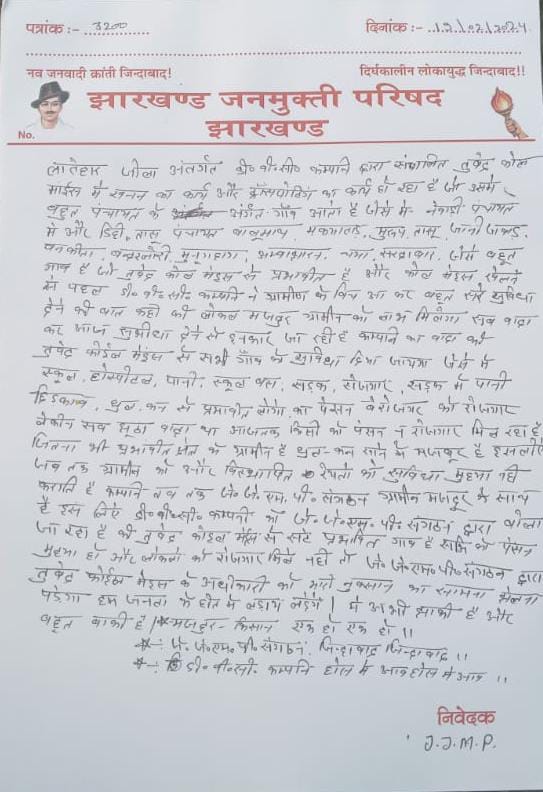 पत्रांक :- 3200 दिनांक :- 19/02/2024
नव जनवादी क्रांती जिन्दाबाद! दिर्घकालीन लोकायुद्ध जिन्दाबाद!!
झारखण्ड जनमुक्ती परिषद
झारखण्ड
No.
लातेहार जीला अंतर्गत डी० वी० सी० कम्पनि द्वारा संचालित तुबेद कोल
माईंस में खनन का कार्य और ट्रांसपोर्टिंग का कार्य हो रहा है जो उसमें
बहुत पंचायत के अंर्गत गाँव आता है जैसे में- नेवाडी पंचायत
में और डिही, तासु पंचायत बालुमाथ,
जैसे बहुत
गाव है जो तुबेद कोल मेंइस से प्रभावीत है और कोल मेंइस खुलने
से पहले डी० वी० सी० कम्पनि ने ग्रामीण के विच आ कर बहुत सारे सुविधा
देने की बात कही की लोकल मजदुर ग्रामीन को लाभ मिलेगा सब वादा
कर आज सुवीधा देने से इनकार जा रही है कम्पनि का वादा की
तुबेद कोईल मेंइस से सभी गाँव के सुविधा दिया जायेगा जैसे में
स्कूल, होस्पीटल, पानी, स्कूल बस, सड़क, रोजगार, सड़क में पानी
छिड़काव, धुल-कन से प्रभावीत लोगो का पेंसन बेरोजगार को रोजगार
लेकीन सब झूठा वादा था आजतक किसी को पेंसन न रोजगार मिल रहा है
जितना भी प्रभावीत क्षेत्र के ग्रामीन है धुल-कन खाने में मजबूर है इसलीए
जब तक ग्रामीन को और विस्थापित रैयतो को सुविधा मुहया नहीं
कराति है कम्पनि तब तक जे० जे० एम० पी० संगठन ग्रामीन मजदुर के साथ
है इस लिए डी० वी० सी० कम्पनी को जे० जे० एम० पी० संगठन द्वारा बोला
जा रहा है की तुबेद कोइल मेंस से सटे प्रभावित गाव है सभि को पेंसन
मुहया हो और लोकलो को रोजगार मिले नहीं तो जे० जे० एम० पी० संगठन द्वारा
तुबेद कोईल मेंइस के अधीकारी को भारी नुक्सान का सामना झेलना
पड़ेगा हम जनता के हीत में लडाय लडेंगें। ये अभी झाकी है और
बहुत बाकी है। मजदुर-किसान एक हो एक हो।।
*:- जे० जे० एम० पी० संगठन जिन्दाबाद जिन्दाबाद।।
*:- डी० वी० सी० कम्पनि होस में आव होस में आव।।
निवेदक
J.J.M.P.